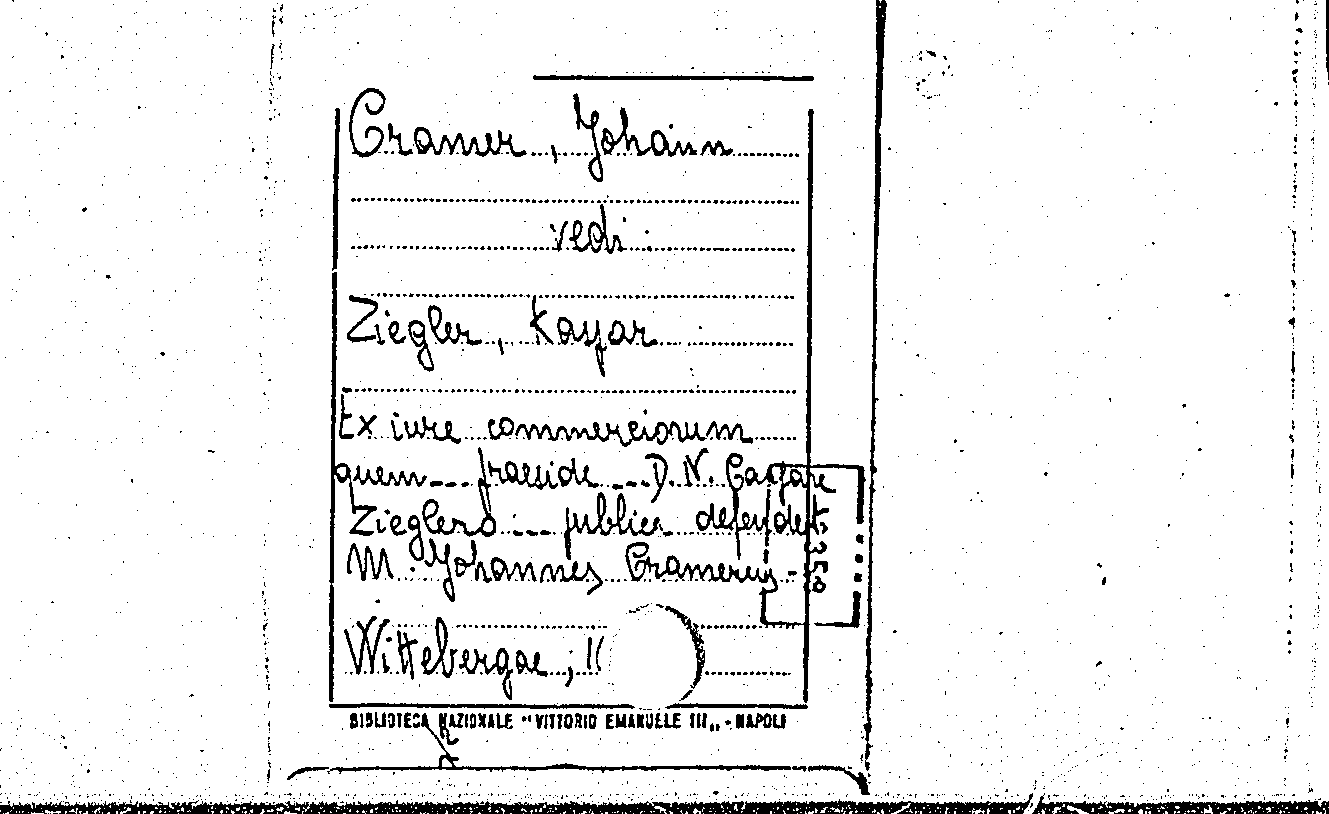 Cramer, Johann
vedi:
Ziegler, Kaspar
Ex iure commerciorum
quem--- praeside ---D. N. Caspare
Zieglero --- publice defendet
M. Johannes Cramerus -
Wittebergae, 1
BIBLIOTECA NAZIONALE "VITTORIO EMANUELE III„ - NAPOLI